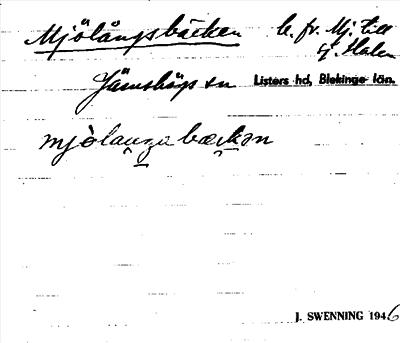 Mjölångsbäcken b. fr. Mj. till
sj. Halen
Jämshögs sn Listers hd, Blekinge län.
mjölaŋgabækan
J. SWENNING 1946